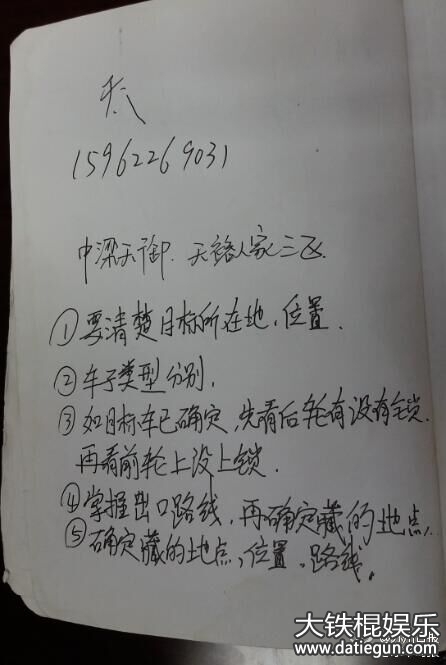 15962269031
中梁天御. 天裕人家三区.
①要清楚目标所在地,位置.
②车子类型分别,
③如目标车已确定,先看后轮有没有锁.
再看前轮上没上锁.
④掌握出口路线,再确定藏的地点,
⑤确定藏的地点,位置,路线。
大铁棍娱乐
www.datiegun.com